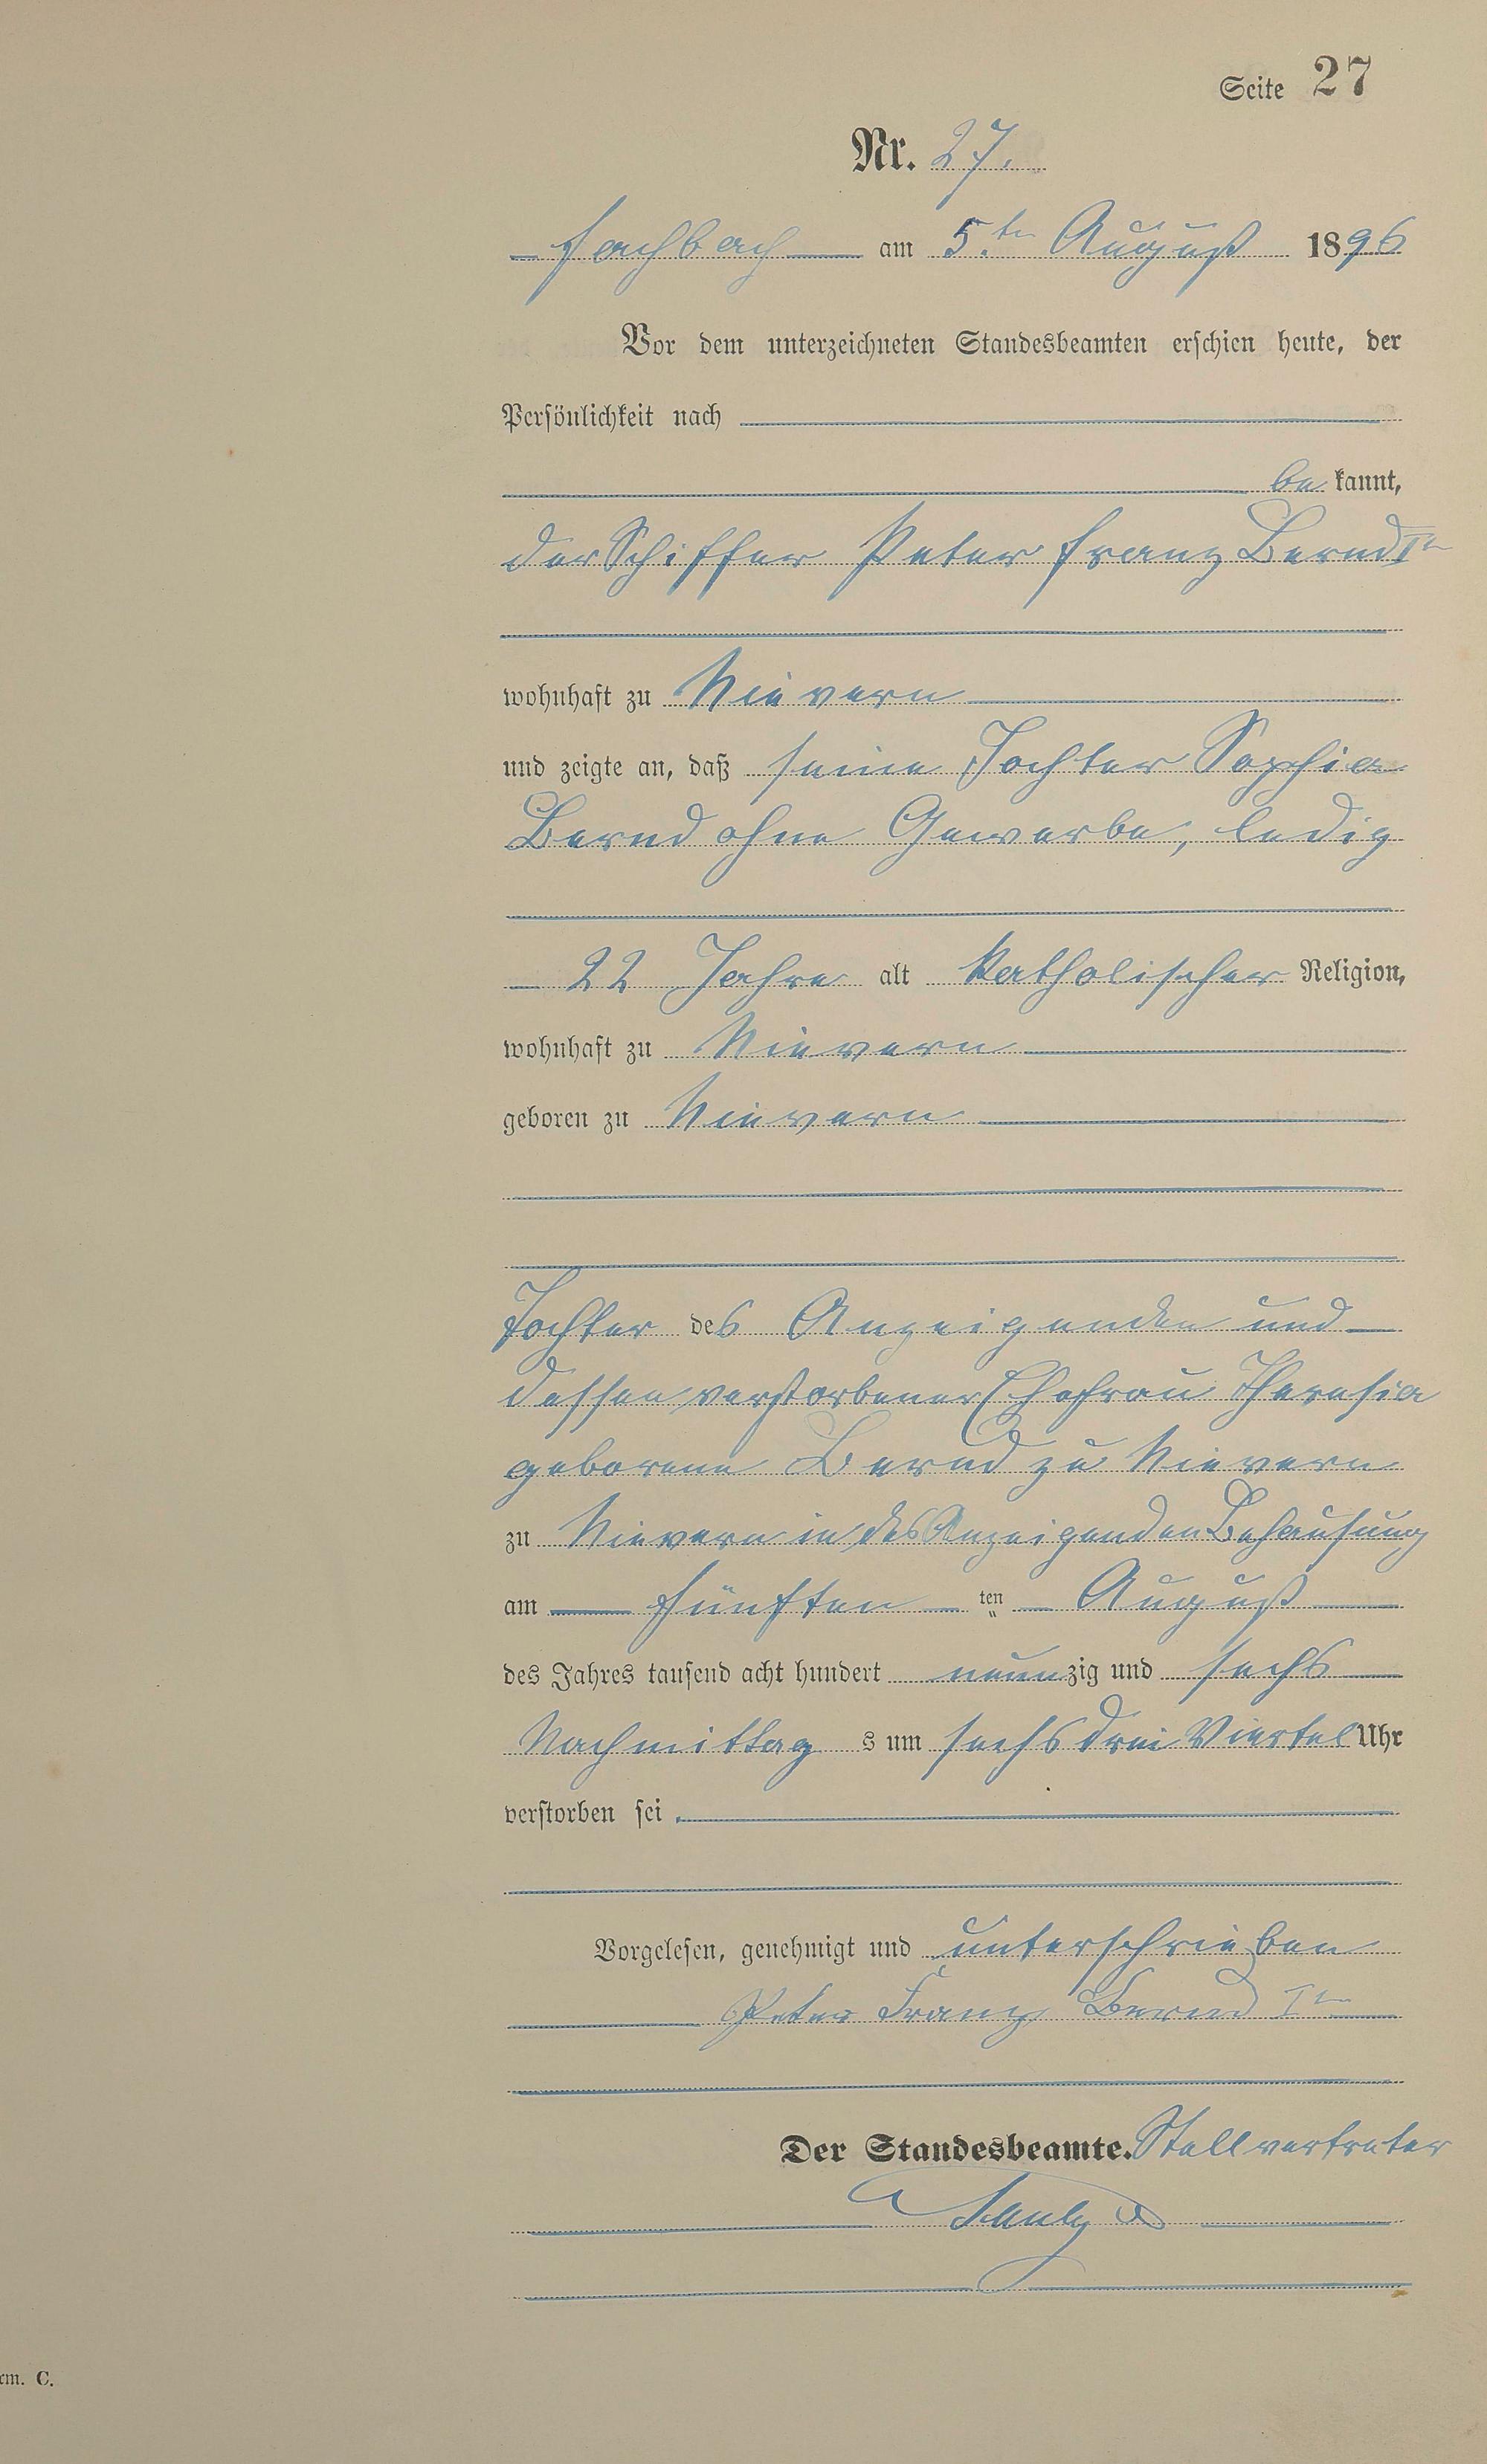 Seite 27
Nr. 27.
Fachbach am 5.ten August 1896
Vor dem unterzeichneten Standesbeamten erschien heute, der
Persönlichkeit nach
be kannt,
der Schiffer Peter Franz Bernd Ir
wohnhaft zu Nievern
und zeigte an, daß seine Tochter Sophia
Bernd ohne Gewerbe, ledig
22 Jahre alt katholischer Religion,
wohnhaft zu Nievern
geboren zu Nievern
Tochter des Anzeigenden und
dessen verstorbener Ehefrau Theresia
geborene Bernd zu Nievern
zu Nievern in des Anzeigenden Behausung
am fünften ten August
des Jahres tausend acht hundert neunzig und sechs
Nachmittag s um sechs drei Viertel Uhr
verstorben sei
Vorgelesen, genehmigt und unterschrieben
Peter Franz Bernd Ir
Der Standesbeamte. Stellvertreter
rm. C.